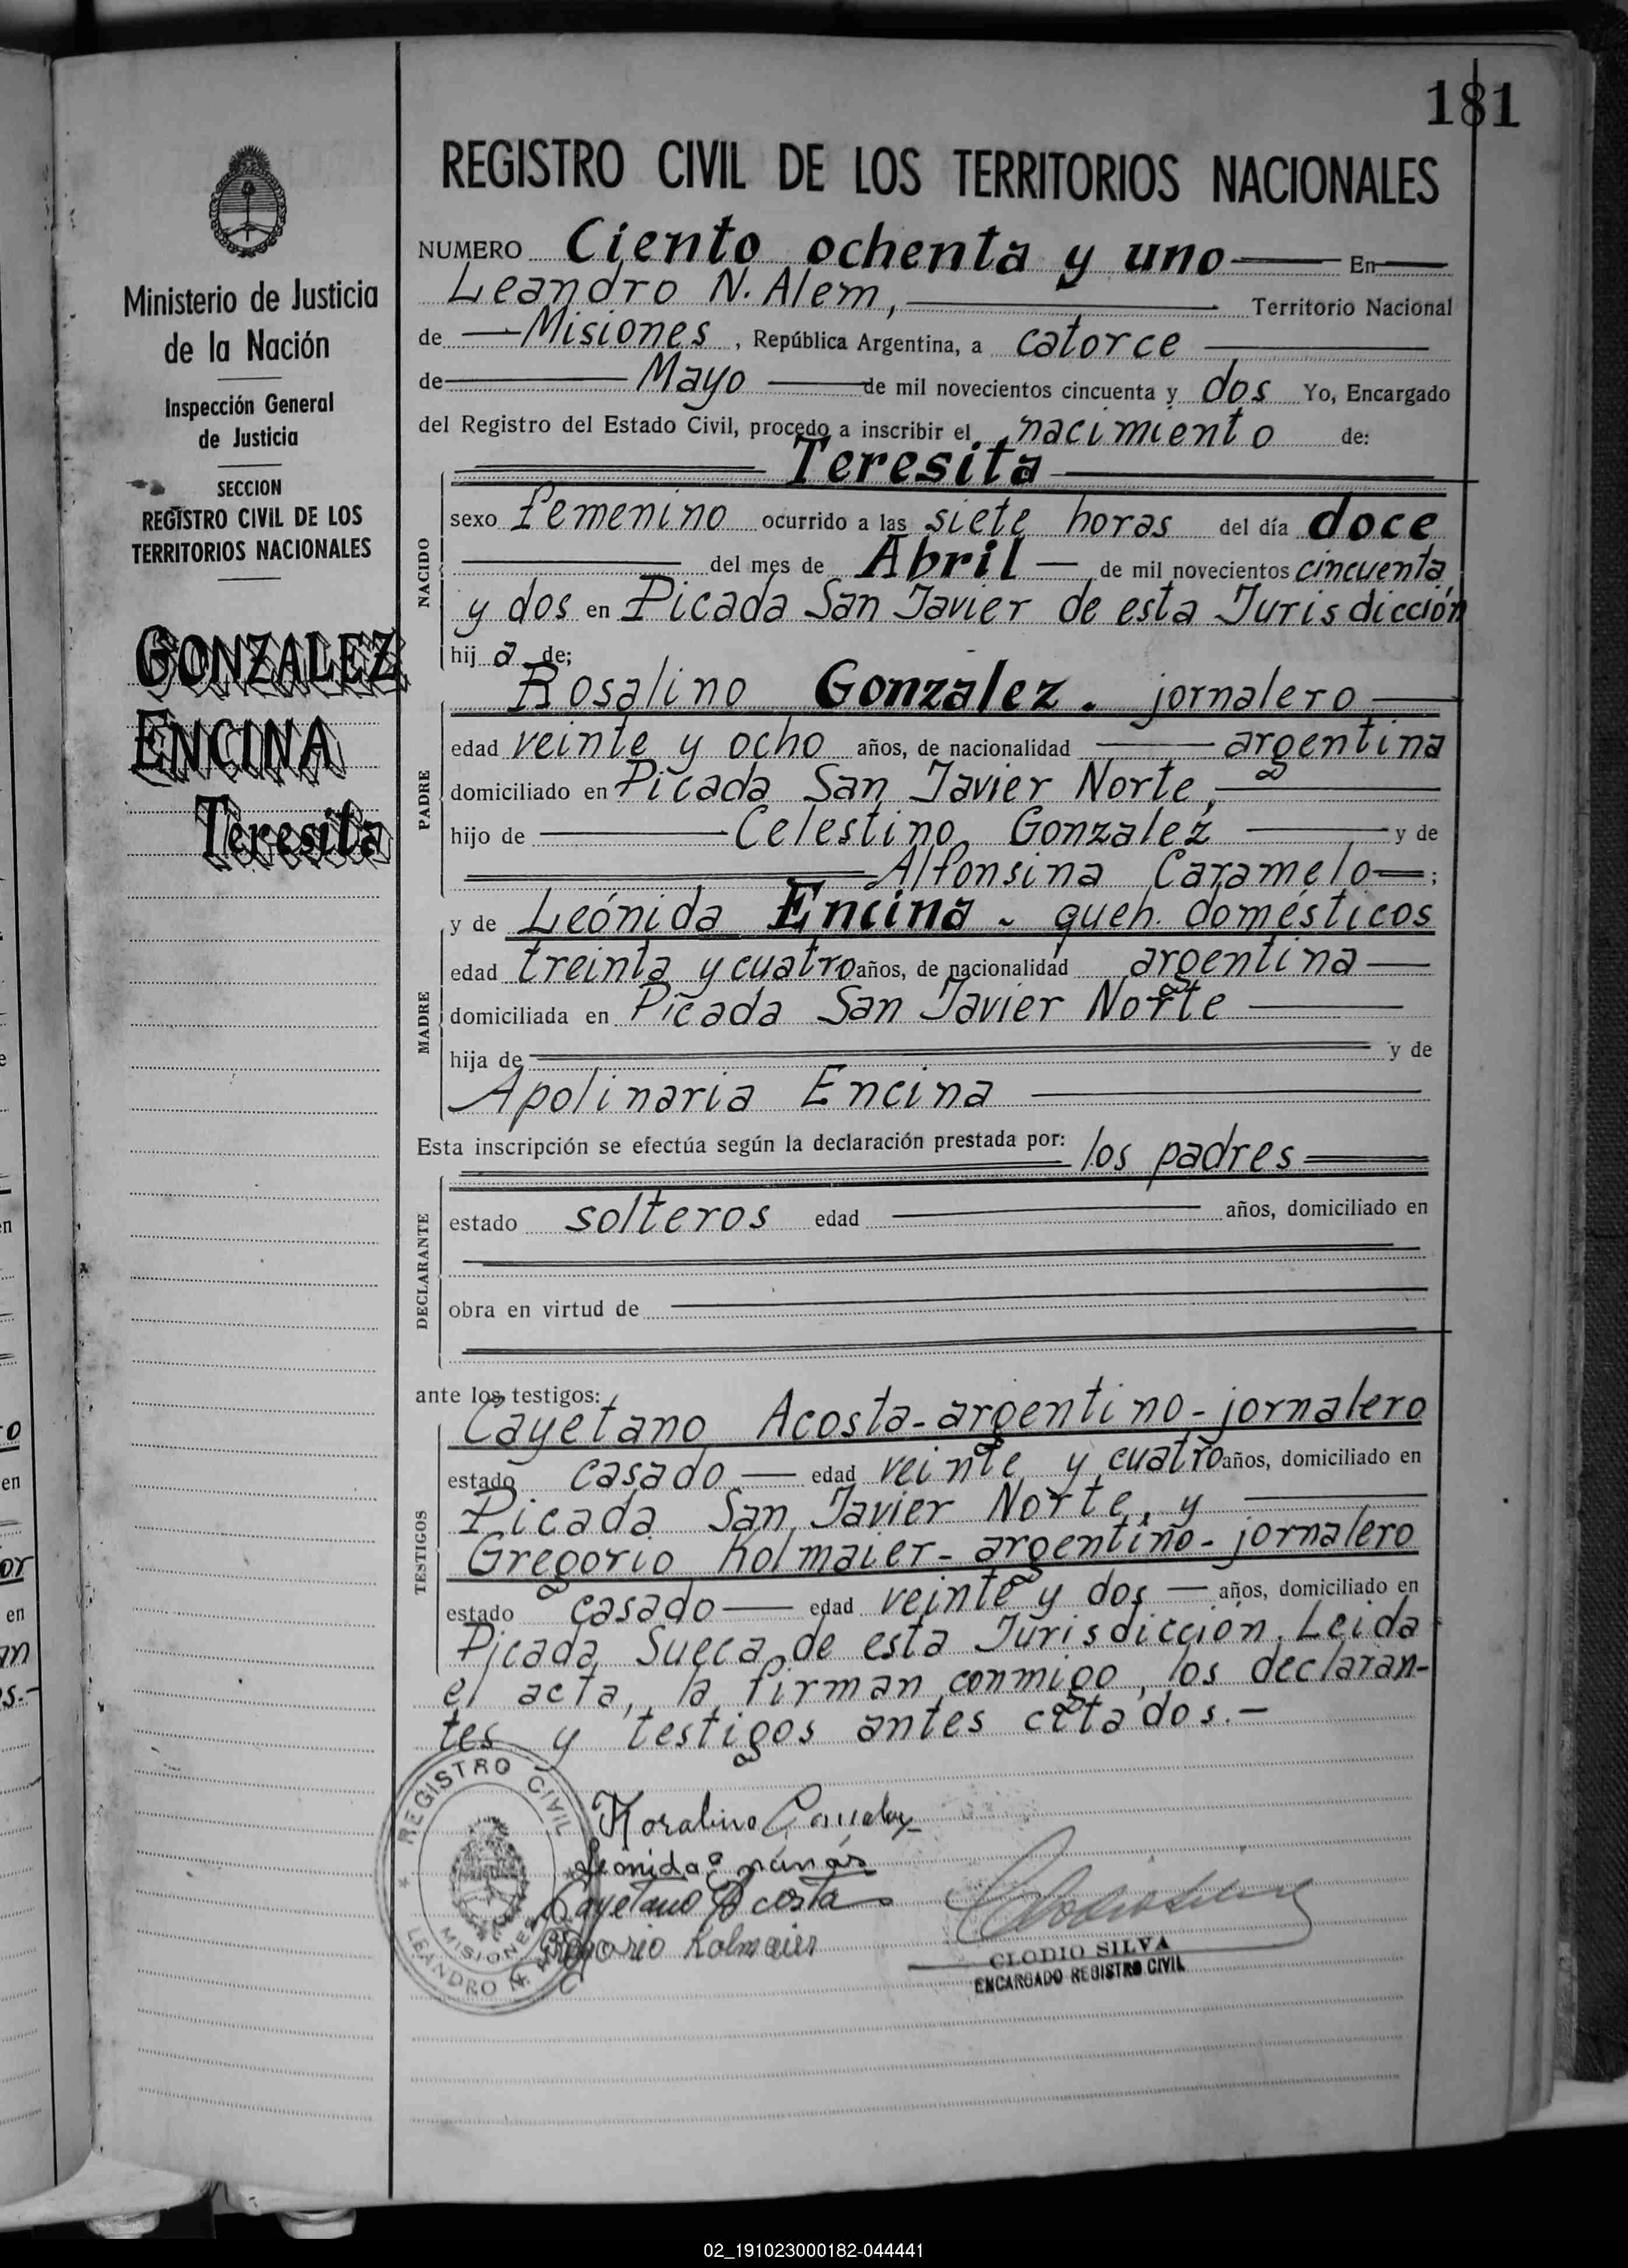 181
REGISTRO CIVIL DE LOS TERRITORIOS NACIONALES
Ministerio de Justicia
de la Nación
Inspección General
de Justicia
SECCION
REGISTRO CIVIL DE LOS
TERRITORIOS NACIONALES
GONZALEZ
ENCINA
Teresita
NUMERO Ciento ochenta y uno En
Leandro N. Alem, Territorio Nacional
de Misiones, República Argentina, a catorce
de Mayo de mil novecientos cincuenta y dos Yo, Encargado
del Registro del Estado Civil, procedo a inscribir el nacimiento de:
Teresita
NACIDO
sexo femenino ocurrido a las siete horas del día doce
del mes de Abril de mil novecientos cincuenta
y dos en Picada San Javier de esta Jurisdicción
hij a de;
Rosalino Gonzalez. jornalero
PADRE
edad veinte y ocho años, de nacionalidad argentina
domiciliado en Picada San Javier Norte,
hijo de Celestino Gonzalez y de
Alfonsina Caramelo;
y de Leónida Encina - queh. domésticos
MADRE
edad treinta y cuatro años, de nacionalidad argentina
domiciliada en Picada San Javier Norte
hija de y de
Apolinaria Encina
Esta inscripción se efectúa según la declaración prestada por: los padres
DECLARANTE
estado solteros edad años, domiciliado en
obra en virtud de
ante los testigos:
Cayetano Acosta-argentino-jornalero
TESTIGOS
estado casado edad veinte y cuatro años, domiciliado en
Picada San Javier Norte, y
Gregorio Kolmaier-argentino-jornalero
estado casado edad veinte y dos años, domiciliado en
Picada Sueca de esta Jurisdicción. Leida
el acta, la firman conmigo, los declaran-
tes y testigos antes citados.-
REGISTRO CIVIL
MISIONES
LEANDRO N. ALEM
Rosalino Gonzalez
Leonida
Cayetano Acosta
Gregorio Kolmaier
CLODIO SILVA
ENCARGADO REGISTRO CIVIL
02_191023000182-044441